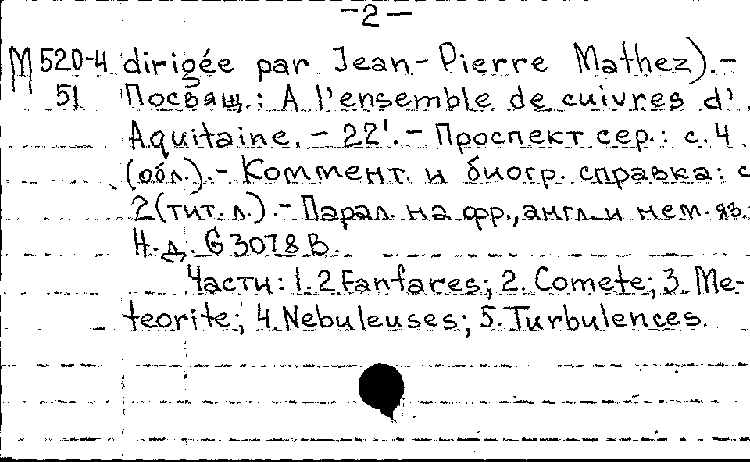 -2-
М 520-4 dirigée par Jean-Pierre Mathez).-
51 Посвящ.: A l'ensemble de cuivres d'
Aquitaine. - 22'. - Проспект сер.: с. 4
(обл.).- Коммент. и биогр. справка: с
2(тит. л.).- Парал. на фр., англ. и нем. яз.
Н. д. G 3078 B.
Части: 1. 2 Fanfares; 2. Comete; 3. Me-
teorite; 4. Nebuleuses; 5. Turbulences.